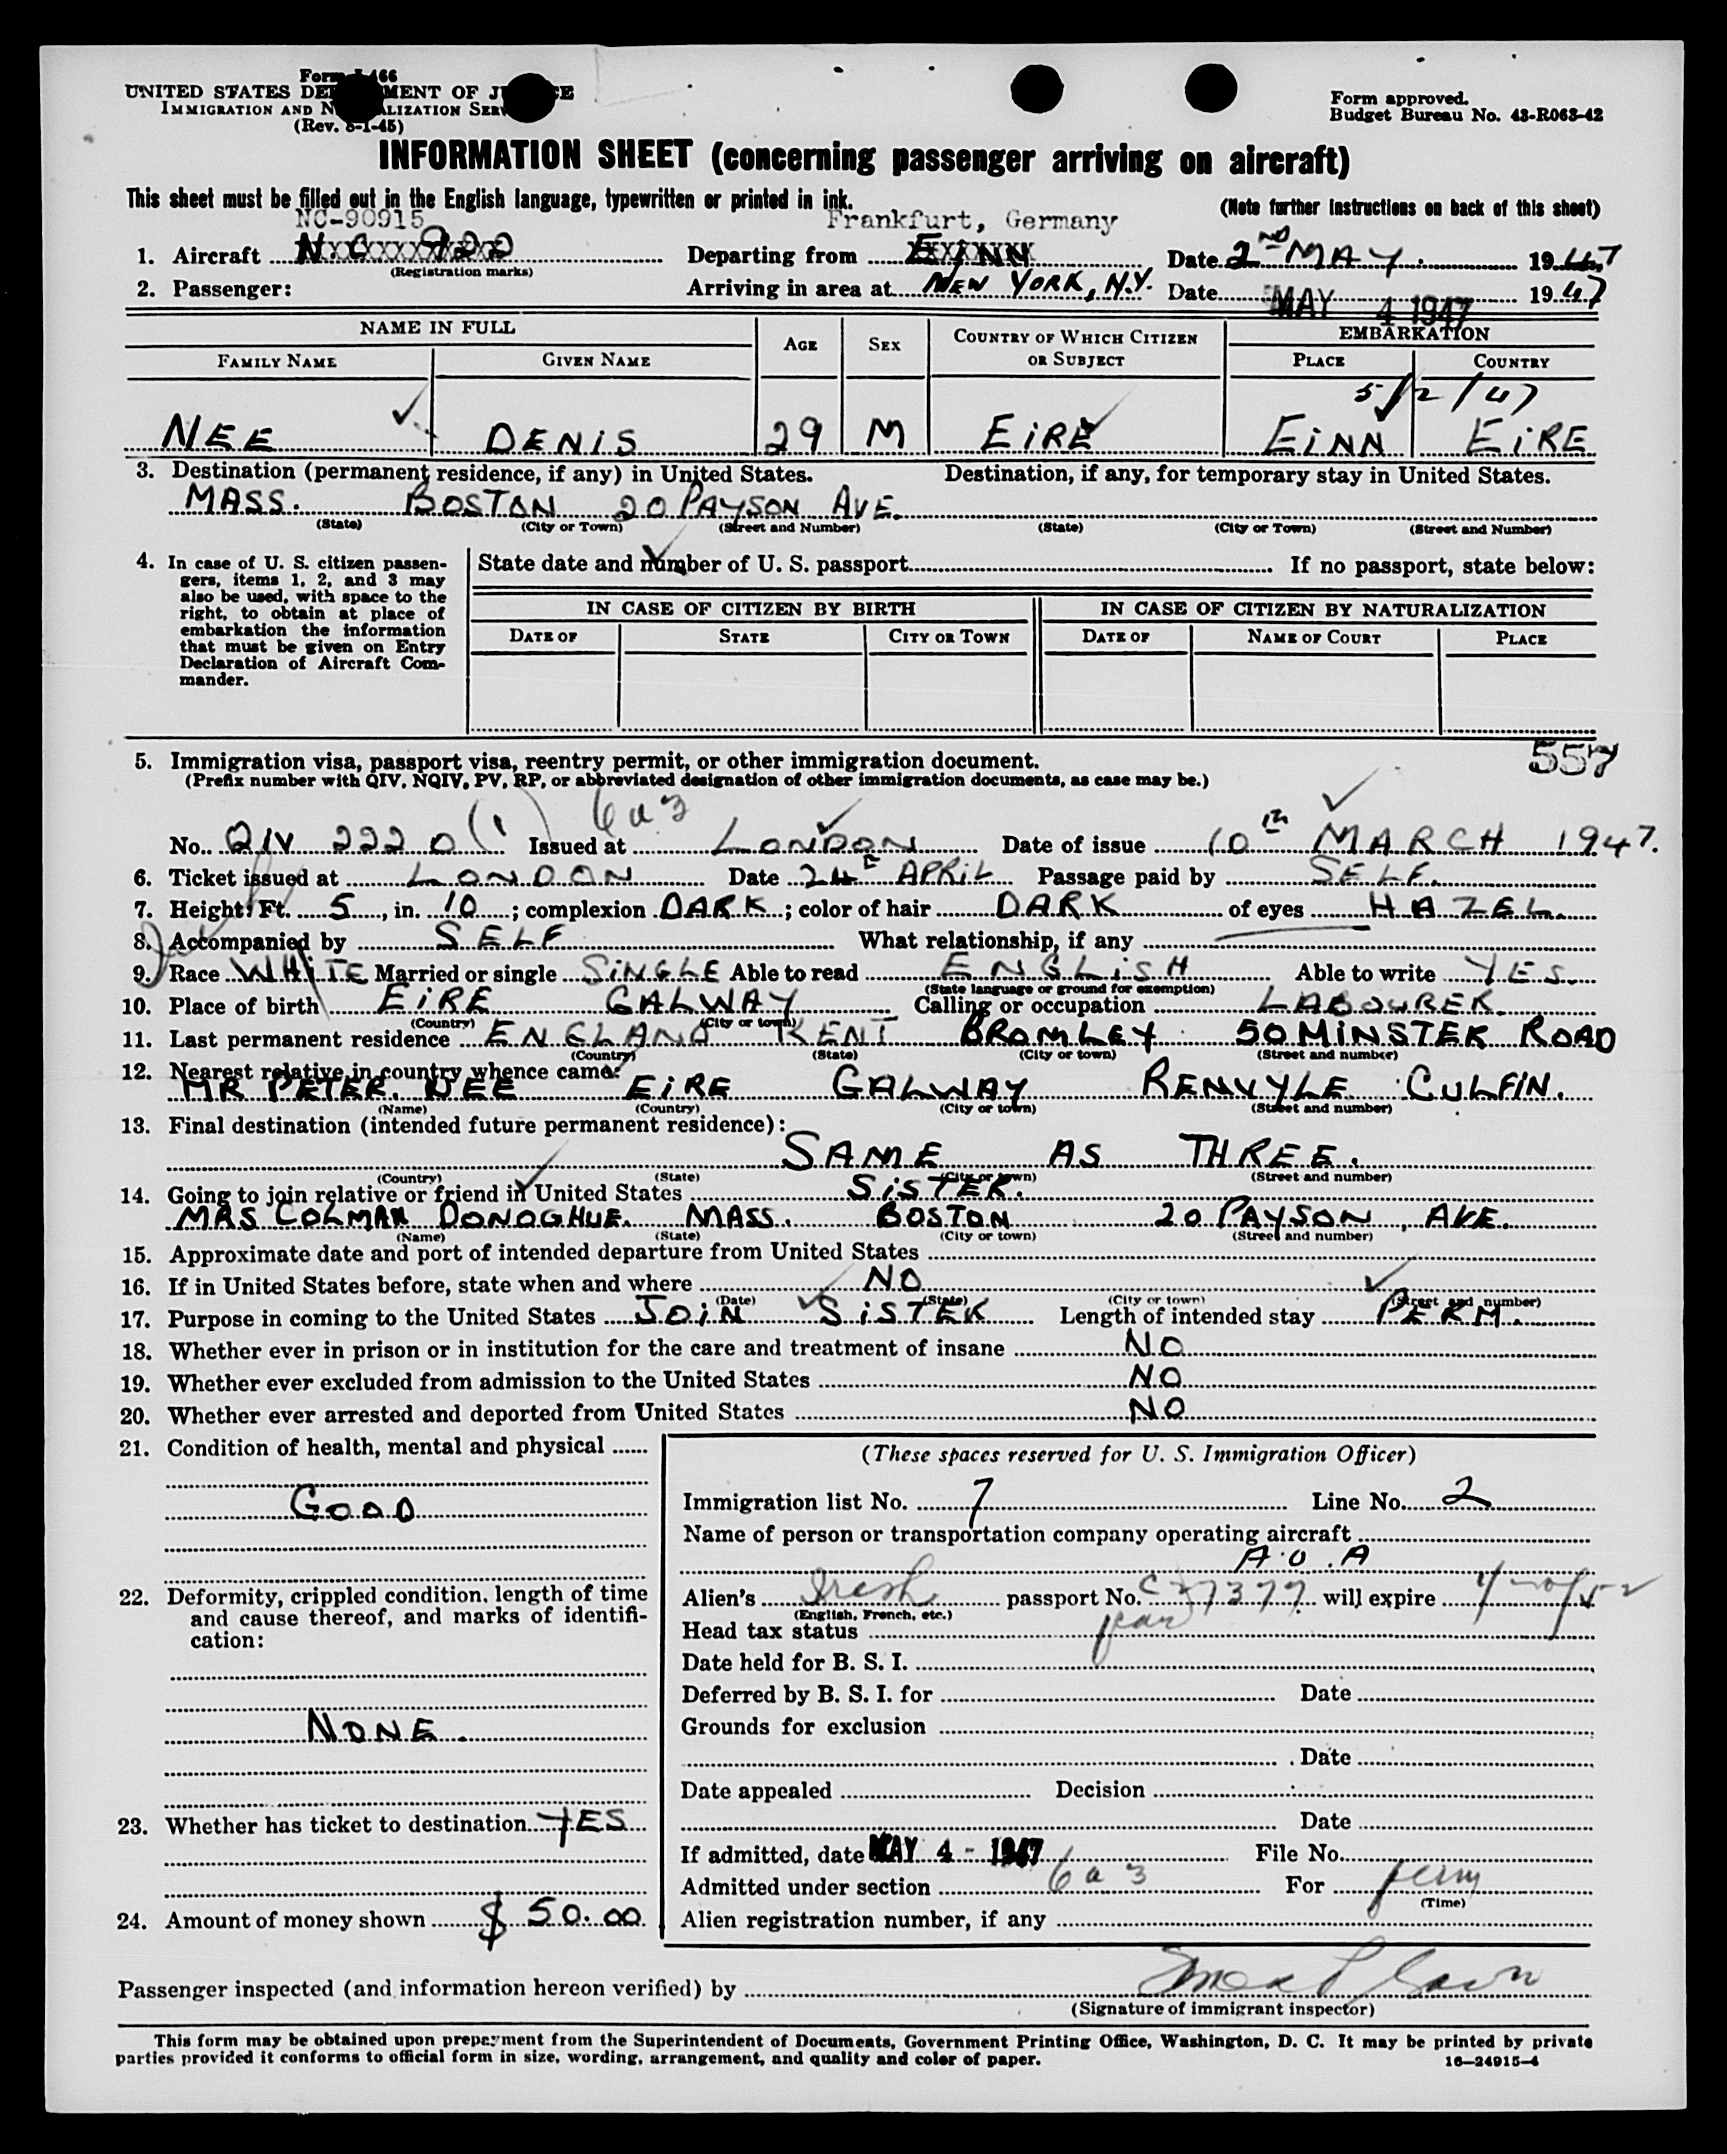 Form I-466
UNITED STATES DEPARTMENT OF JUSTICE
IMMIGRATION AND NATURALIZATION SERVICE
(Rev. 8-1-45)
Form approved.
Budget Bureau No. 43-R063-42
INFORMATION SHEET (concerning passenger arriving on aircraft)
This sheet must be filled out in the English language, typewritten or printed in ink.
(Note further instructions on back of this sheet)
NC-90915 Frankfurt, Germany
1. Aircraft N.C. 922 (Registration marks) Departing from EINN Date 2ND MAY. 1947
2. Passenger: Arriving in area at NEW YORK, N.Y. Date MAY 4 1947 1947
NAME IN FULL AGE SEX COUNTRY OF WHICH CITIZEN OR SUBJECT EMBARKATION
FAMILY NAME GIVEN NAME PLACE COUNTRY
5/2/47
NEE DENIS 29 M EIRE EINN EIRE
3. Destination (permanent residence, if any) in United States. Destination, if any, for temporary stay in United States.
MASS. BOSTON 20 PAYSON AVE.
(State) (City or Town) (Street and Number) (State) (City or Town) (Street and Number)
4. In case of U. S. citizen passengers, items 1, 2, and 3 may also be used, with space to the right, to obtain at place of embarkation the information that must be given on Entry Declaration of Aircraft Commander.
State date and number of U. S. passport If no passport, state below:
IN CASE OF CITIZEN BY BIRTH IN CASE OF CITIZEN BY NATURALIZATION
DATE OF STATE CITY OR TOWN DATE OF NAME OF COURT PLACE
5. Immigration visa, passport visa, reentry permit, or other immigration document. 557
(Prefix number with QIV, NQIV, PV, RP, or abbreviated designation of other immigration documents, as case may be.)
6 a 3
No. QIV 2220 (1) Issued at LONDON Date of issue 10th MARCH 1947.
6. Ticket issued at LONDON Date 24E APRIL Passage paid by SELF.
7. Height: Ft. 5, in. 10; complexion DARK; color of hair DARK of eyes HAZEL.
8. Accompanied by SELF What relationship, if any
9. Race WHITE Married or single SINGLE Able to read ENGLISH Able to write YES.
(State language or ground for exemption)
10. Place of birth EIRE GALWAY Calling or occupation LABOURER.
(Country) (City or town)
11. Last permanent residence ENGLAND KENT BROMLEY 50 MINSTER ROAD
(Country) (State) (City or town) (Street and number)
12. Nearest relative in country whence came:
MR PETER. NEE EIRE GALWAY RENVYLE CULFIN.
(Name) (Country) (City or town) (Street and number)
13. Final destination (intended future permanent residence):
SAME AS THREE.
(Country) (State) (City or town) (Street and number)
14. Going to join relative or friend in United States SISTER.
MRS COLMAN DONOGHUE. MASS. BOSTON 20 PAYSON, AVE.
(Name) (State) (City or town) (Street and number)
15. Approximate date and port of intended departure from United States
16. If in United States before, state when and where NO
(Date) (State) (City or town) (Street and number)
17. Purpose in coming to the United States JOIN SISTER Length of intended stay PERM.
18. Whether ever in prison or in institution for the care and treatment of insane NO
19. Whether ever excluded from admission to the United States NO
20. Whether ever arrested and deported from United States NO
21. Condition of health, mental and physical
GOOD
22. Deformity, crippled condition, length of time and cause thereof, and marks of identification:
NONE.
23. Whether has ticket to destination YES
24. Amount of money shown $50.00
(These spaces reserved for U. S. Immigration Officer)
Immigration list No. 7 Line No. 2
Name of person or transportation company operating aircraft
A.O.A
Alien's Irish passport No. C 27377 will expire
(English, French, etc.)
Head tax status
Date held for B. S. I.
Deferred by B. S. I. for Date
Grounds for exclusion
Date
Date appealed Decision
Date
If admitted, date MAY 4 - 1947 File No.
Admitted under section 6 a 3 For perm
(Time)
Alien registration number, if any
Passenger inspected (and information hereon verified) by
(Signature of immigrant inspector)
This form may be obtained upon prepayment from the Superintendent of Documents, Government Printing Office, Washington, D. C. It may be printed by private
parties provided it conforms to official form in size, wording, arrangement, and quality and color of paper. 16—24915-4